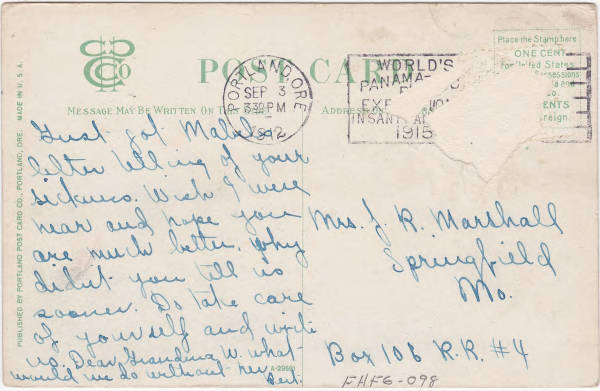 POST CARD
MESSAGE MAY BE WRITTEN ON THIS
ADDRESS ON
Place the Stamp here
ONE CENT
for United States
PORTLAND, ORE.
SEP 3
330PM
1912
WORLD'S
PANAMA-
IN SAN
1915
MADE IN U.S.A.
PUBLISHED BY PORTLAND POST CARD CO., PORTLAND, ORE.
Just got Mabel's
letter telling of your
sickness. Wish I were
near and hope you
are much better. Why
didn't you tell us
sooner. Do take care
of yourself and write
us. Dear Grandma W. what
would we do without her
Bert.
Mrs. J. R. Marshall
Springfield
Mo.
Box 106 R.R. #4
FHF6-098